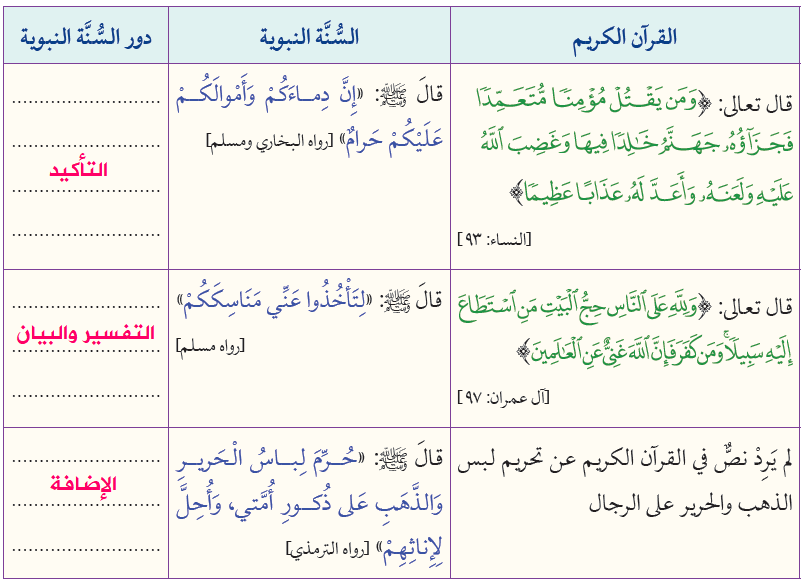 القرآن الكريم
السُّنَّة النبوية
دور السُّنَّة النبوية
قال تعالى: ﴿وَمَن يَقْتُلْ مُؤْمِنًا مُّتَعَمِّدًا
فَجَزَآؤُهُۥ جَهَنَّمُ خَٰلِدًا فِيهَا وَغَضِبَ ٱللَّهُ
عَلَيْهِ وَلَعَنَهُۥ وَأَعَدَّ لَهُۥ عَذَابًا عَظِيمًا﴾
[النساء: ٩٣]
قالَ ﷺ: «إِنَّ دِماءَكُمْ وَأَمْوالَكُـــمْ
عَلَيْكُمْ حَرامٌ» [رواه البخاري ومسلم]
..............................
..............................
التأكيد
..............................
..............................
قال تعالى: ﴿وَلِلَّهِ عَلَى ٱلنَّاسِ حِجُّ ٱلْبَيْتِ مَنِ ٱسْتَطَاعَ
إِلَيْهِ سَبِيلًاۚ وَمَن كَفَرَ فَإِنَّ ٱللَّهَ غَنِىٌّ عَنِ ٱلْعَٰلَمِينَ﴾
[آل عمران: ٩٧]
قالَ ﷺ: «لِتَأْخُذُوا عَنِّي مَنَاسِكَكُمْ»
[رواه مسلم]
..............................
التفسير والبيان
..............................
..............................
لم يَرِدْ نصٌّ في القرآن الكريم عن تحريم لبس
الذهب والحرير على الرجال
قالَ ﷺ: «حُــرِّمَ لِبــاسُ الْحَريــرِ
وَالذَّهَبِ عَلى ذُكــورِ أُمَّتي، وَأُحِلَّ
لِإِناثِهِمْ» [رواه الترمذي]
..............................
الإضافة
..............................
..............................